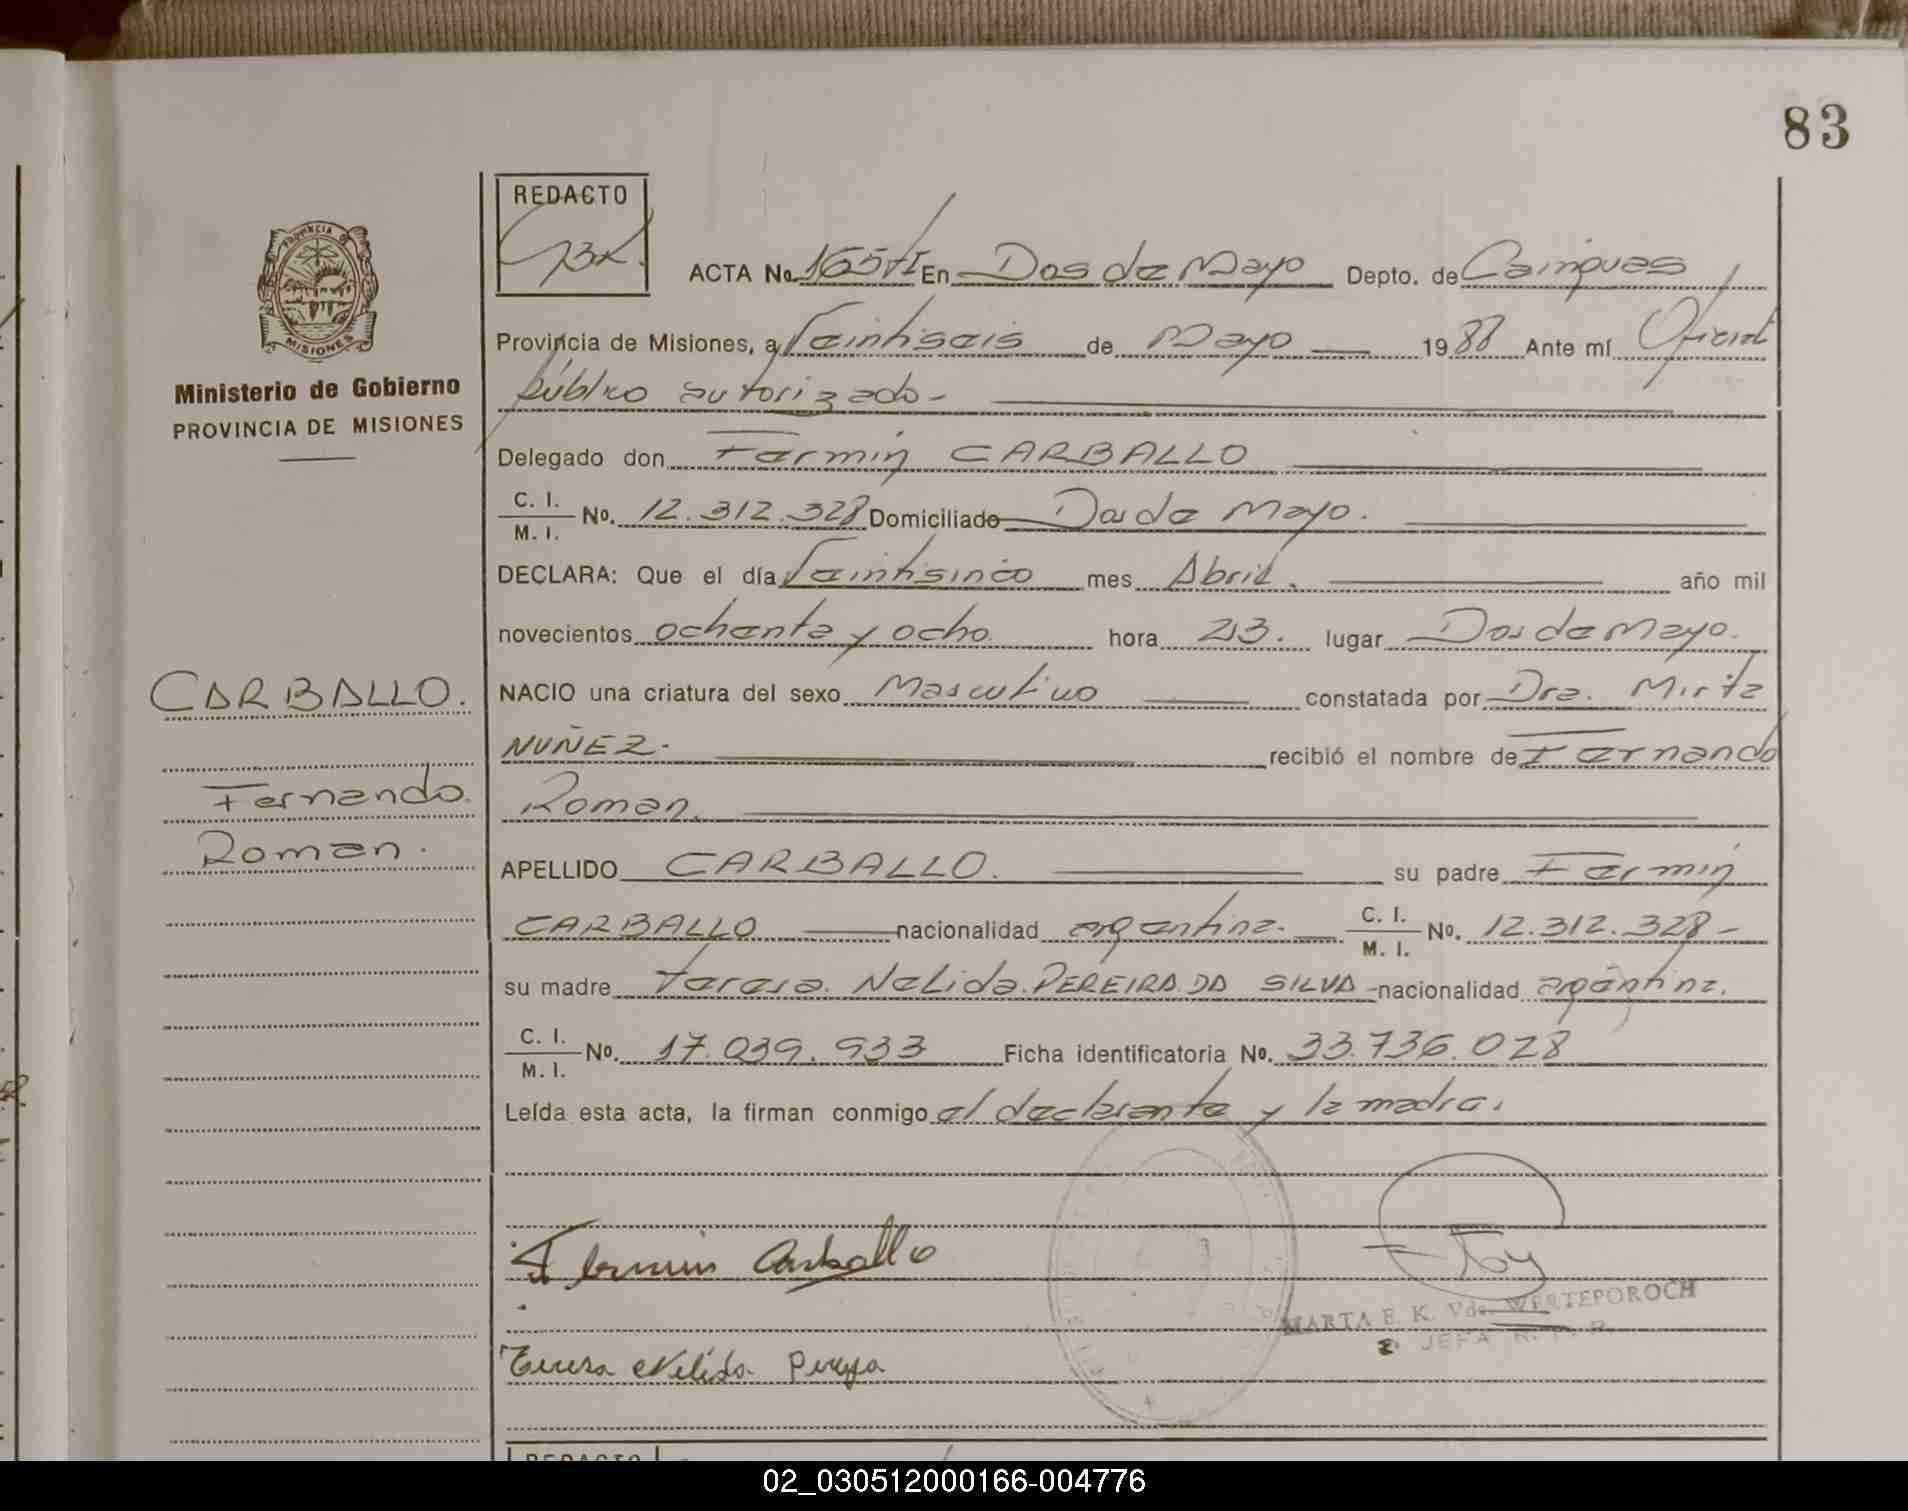 83
REDACTO
ACTA No. 165 tI En Dos de Mayo Depto. de Cainguas
Provincia de Misiones, a Veintiseis de Mayo 1988 Ante mí Oficial
público autorizado-
Delegado don Fermin CARBALLO
C. I.
M. I. No. 12.312.328 Domiciliado Dos de Mayo.
DECLARA: Que el día Veintisinco mes Abril. año mil
novecientos ochenta y ocho hora 23. lugar Dos de Mayo.
NACIO una criatura del sexo Masculino constatada por Dra. Mirta
NUÑEZ. recibió el nombre de Fernando
Roman.
APELLIDO CARBALLO. su padre Fermin
CARBALLO nacionalidad argentina. C. I.
M. I. No. 12.312.328-
su madre Teresa Nelida PEREIRA DA SILVA - nacionalidad argentina.
C. I.
M. I. No. 17.039.933 Ficha identificatoria No. 33.736.028
Leída esta acta, la firman conmigo el declarante y la madre.
Fermin Carballo
MARTA E. K. Vda. WERTEPOROCH
JEFA R. P. P.
Teresa Nelida Pereyra
PROVINCIA DE
MISIONES
Ministerio de Gobierno
PROVINCIA DE MISIONES
CARBALLO.
Fernando.
Roman.
REDACTO
02_030512000166-004776